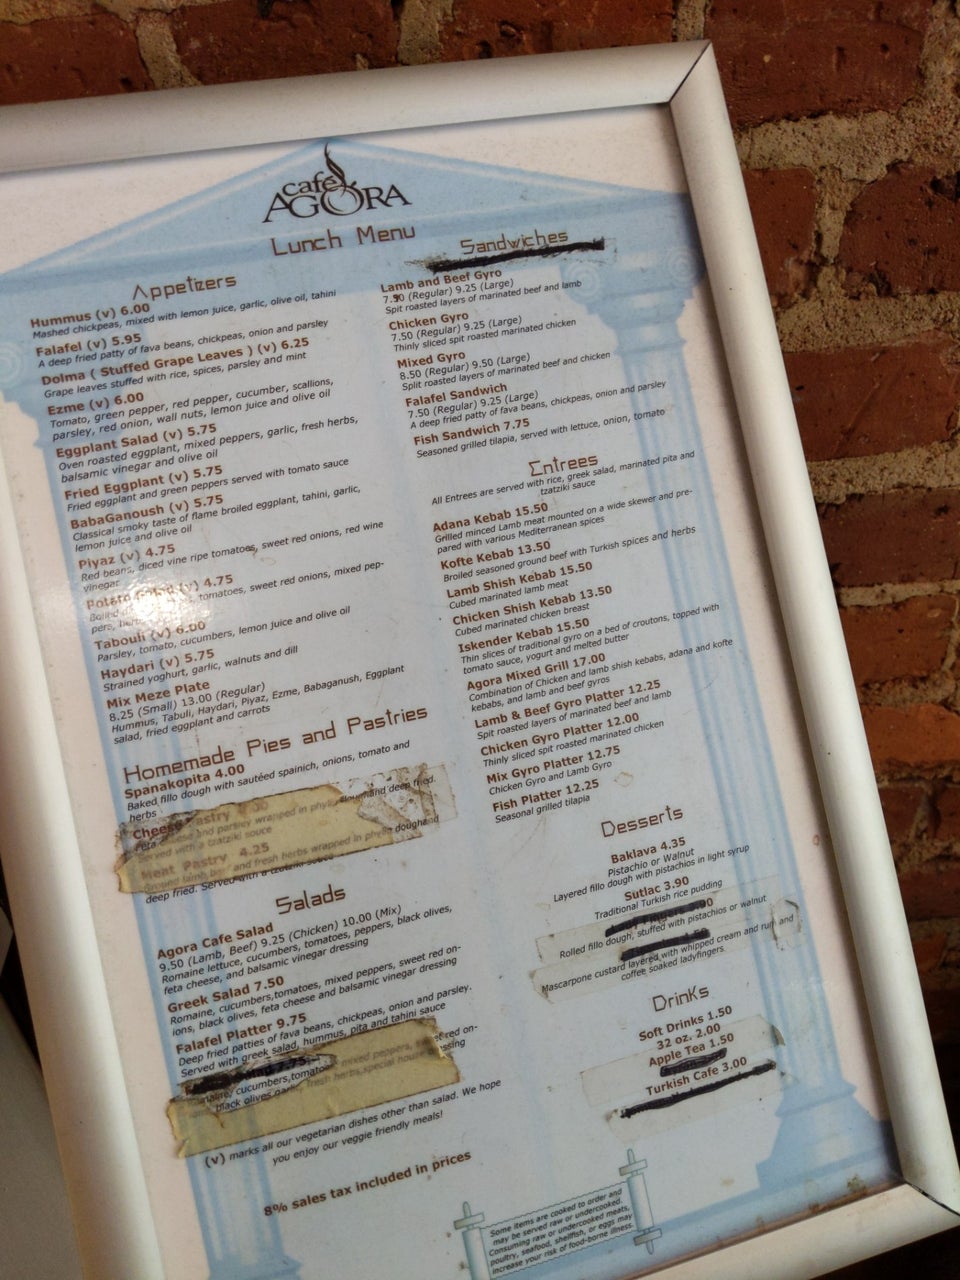 café
AGORA
Lunch Menu
Appetizers
Hummus (v) 6.00
Mashed chickpeas, mixed with lemon juice, garlic, olive oil, tahini
Falafel (v) 5.95
A deep fried patty of fava beans, chickpeas, onion and parsley
Dolma ( Stuffed Grape Leaves ) (v) 6.25
Grape leaves stuffed with rice, spices, parsley and mint
Ezme (v) 6.00
Tomato, green pepper, red pepper, cucumber, scallions,
parsley, red onion, wall nuts, lemon juice and olive oil
Eggplant Salad (v) 5.75
Oven roasted eggplant, mixed peppers, garlic, fresh herbs,
balsamic vinegar and olive oil
Fried Eggplant (v) 5.75
Fried eggplant and green peppers served with tomato sauce
BabaGanoush (v) 5.75
Classical smoky taste of flame broiled eggplant, tahini, garlic,
lemon juice and olive oil
Piyaz (v) 4.75
Red beans, diced vine ripe tomatoes, sweet red onions, red wine
vinegar
Potato Salad (v) 4.75
Boiled tomatoes, sweet red onions, mixed pep-
pers,
Tabouli (v) 6.00
Parsley, tomato, cucumbers, lemon juice and olive oil
Haydari (v) 5.75
Strained yoghurt, garlic, walnuts and dill
Mix Meze Plate
8.25 (Small) 13.00 (Regular)
Hummus, Tabuli, Haydari, Piyaz, Ezme, Babaganush, Eggplant
salad, fried eggplant and carrots
Homemade Pies and Pastries
Spanakopita 4.00
Baked fillo dough with sautéed spainich, onions, tomato and
herbs
Cheese Pastry
Feta cheese and parsley wrapped in phyllo dough and deep fried.
Served with a tzatziki souce
Meat Pastry 4.25
Ground lamb, beef and fresh herbs wrapped in phyllo doughand
deep fried. Served with a tzatziki souce
Salads
Agora Cafe Salad
9.50 (Lamb, Beef) 9.25 (Chicken) 10.00 (Mix)
Romaine lettuce, cucumbers, tomatoes, peppers, black olives,
feta cheese, and balsamic vinegar dressing
Greek Salad 7.50
Romaine, cucumbers,tomatoes, mixed peppers, sweet red on-
ions, black olives, feta cheese and balsamic vinegar dressing
Falafel Platter 9.75
Deep fried patties of fava beans, chickpeas, onion and parsley.
Served with greek salad, hummus, pita and tahini sauce
cucumbers,tomatoes mixed peppers, sweet red on-
black olives fresh herbs,special house dressing
(v) marks all our vegetarian dishes other than salad. We hope
you enjoy our veggie friendly meals!
8% sales tax included in prices
Sandwiches
Lamb and Beef Gyro
7.50 (Regular) 9.25 (Large)
Spit roasted layers of marinated beef and lamb
Chicken Gyro
7.50 (Regular) 9.25 (Large)
Thinly sliced spit roasted marinated chicken
Mixed Gyro
8.50 (Regular) 9.50 (Large)
Split roasted layers of marinated beef and chicken
Falafel Sandwich
7.50 (Regular) 9.25 (Large)
A deep fried patty of fava beans, chickpeas, onion and parsley
Fish Sandwich 7.75
Seasoned grilled tilapia, served with lettuce, onion, tomato
Entrees
All Entrees are served with rice, greek salad, marinated pita and
tzatziki sauce
Adana Kebab 15.50
Grilled minced Lamb meat mounted on a wide skewer and pre-
pared with various Mediterranean spices
Kofte Kebab 13.50
Broiled seasoned ground beef with Turkish spices and herbs
Lamb Shish Kebab 15.50
Cubed marinated lamb meat
Chicken Shish Kebab 13.50
Cubed marinated chicken breast
Iskender Kebab 15.50
Thin slices of traditional gyro on a bed of croutons, topped with
tomato sauce, yogurt and melted butter
Agora Mixed Grill 17.00
Combination of Chicken and lamb shish kebabs, adana and kofte
kebabs, and lamb and beef gyros
Lamb & Beef Gyro Platter 12.25
Spit roasted layers of marinated beef and lamb
Chicken Gyro Platter 12.00
Thinly sliced spit roasted marinated chicken
Mix Gyro Platter 12.75
Chicken Gyro and Lamb Gyro
Fish Platter 12.25
Seasonal grilled tilapia
Desserts
Baklava 4.35
Pistachio or Walnut
Layered fillo dough with pistachios in light syrup
Sutlac 3.90
Traditional Turkish rice pudding
Rolled fillo dough, stuffed with pistachios or walnut
Mascarpone custard layered with whipped cream and rum and
coffee soaked ladyfingers.
Drinks
Soft Drinks 1.50
32 oz. 2.00
Apple Tea 1.50
Turkish Cafe 3.00
Some items are cooked to order and
may be served raw or undercooked.
Consuming raw or undercooked meats,
poultry, seafood, shellfish, or eggs may
increase your risk of food-borne illness.